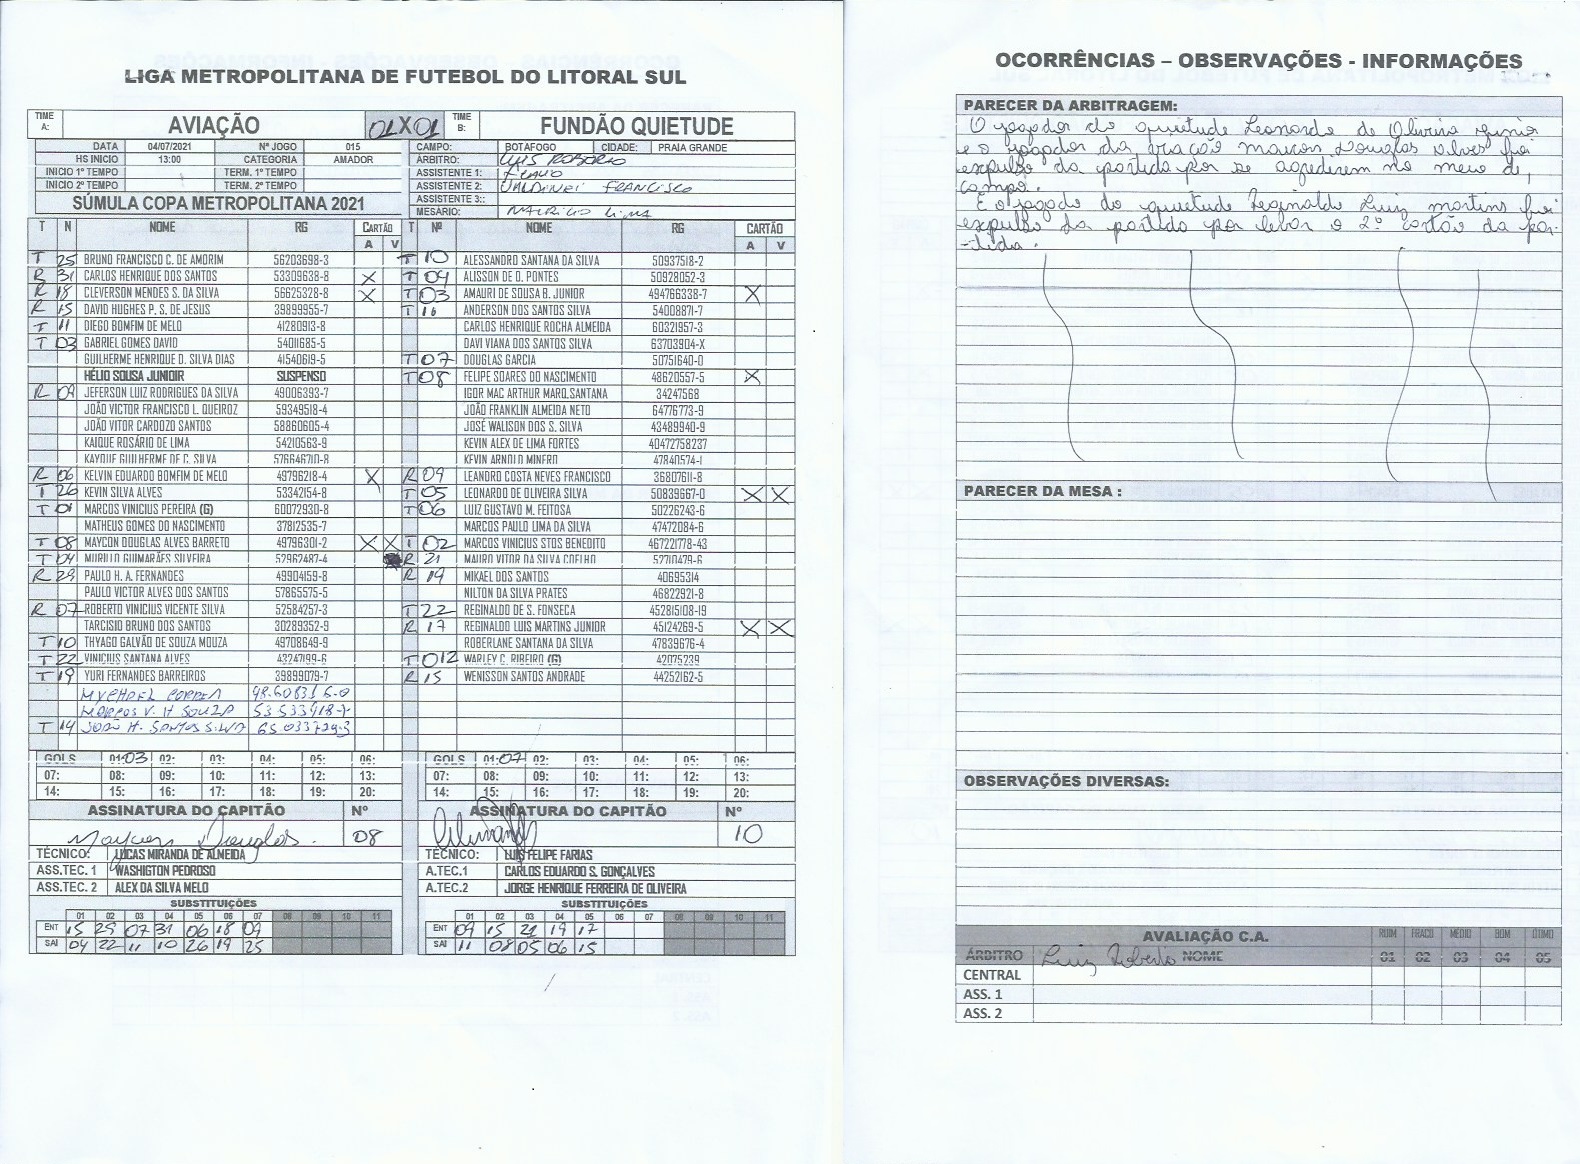 LIGA METROPOLITANA DE FUTEBOL DO LITORAL SUL
TIME A: AVIAÇÃO 01 X 01 TIME B: FUNDÃO QUIETUDE
DATA 04/07/2021 Nº JOGO 015 CAMPO: BOTAFOGO CIDADE: PRAIA GRANDE
HS INICIO 13:00 CATEGORIA AMADOR ÁRBITRO: LUIS ROBERTO
INICIO 1º TEMPO TERM. 1º TEMPO ASSISTENTE 1: FLAVIO
INICIO 2º TEMPO TERM. 2º TEMPO ASSISTENTE 2: VALDINEI FRANCISCO
SÚMULA COPA METROPOLITANA 2021 ASSISTENTE 3::
MESÁRIO: MAURICIO LIMA
T N NOME RG CARTÃO T Nº NOME RG CARTÃO
A V A V
T 25 BRUNO FRANCISCO C. DE AMORIM 56203698-3 T 10 ALESSANDRO SANTANA DA SILVA 50937518-2
R 31 CARLOS HENRIQUE DOS SANTOS 53309638-8 X T 09 ALISSON DE O. PONTES 50928052-3
R 18 CLEVERSON MENDES S. DA SILVA 56625328-8 X T 03 AMAURI DE SOUSA B. JUNIOR 494766338-7 X
R 15 DAVID HUGHES P. S. DE JESUS 39899955-7 T 16 ANDERSON DOS SANTOS SILVA 54008871-7
T 11 DIEGO BOMFIM DE MELO 41280913-8 CARLOS HENRIQUE ROCHA ALMEIDA 60321957-3
T 03 GABRIEL GOMES DAVID 54011685-5 DAVI VIANA DOS SANTOS SILVA 63703904-X
GUILHERME HENRIQUE D. SILVA DIAS 41540619-5 T 07 DOUGLAS GARCIA 50751640-0
HÉLIO SOUSA JUNIOIR SUSPENSO T 08 FELIPE SOARES DO NASCIMENTO 48620557-5 X
R 09 JEFERSON LUIZ RODRIGUES DA SILVA 49006393-7 IGOR MAC ARTHUR MARQ.SANTANA 34247568
JOÃO VICTOR FRANCISCO L. QUEIROZ 59349518-4 JOÃO FRANKLIN ALMEIDA NETO 64776773-9
JOÃO VITOR CARDOZO SANTOS 58860605-4 JOSÉ WALISON DOS S. SILVA 43489940-9
KAIQUE ROSÁRIO DE LIMA 54210563-9 KEVIN ALEX DE LIMA FORTES 40472758237
KAYQUE GUILHERME DE C. SILVA 576646710-8 KEVIN ARNOLD MINERO 47840574-1
R 06 KELVIN EDUARDO BOMFIM DE MELO 49796218-4 X R 09 LEANDRO COSTA NEVES FRANCISCO 36807611-8
T 26 KEVIN SILVA ALVES 53342154-8 T 05 LEONARDO DE OLIVEIRA SILVA 50839667-0 X X
T 01 MARCOS VINICIUS PEREIRA (G) 60072930-8 T 06 LUIZ GUSTAVO M. FEITOSA 50226243-6
MATHEUS GOMES DO NASCIMENTO 37812535-7 MARCOS PAULO LIMA DA SILVA 47472084-6
T 08 MAYCON DOUGLAS ALVES BARRETO 4976301-2 X X T 02 MARCOS VINICIUS STOS BENEDITO 467221778-43
T 04 MURILLO GUIMARÃES SILVEIRA 52962487-4 R 21 MAURO VITOR DA SILVA COELHO 52710479-6
R 29 PAULO H. A. FERNANDES 49904159-8 R 19 MIKAEL DOS SANTOS 40695314
PAULO VICTOR ALVES DOS SANTOS 57865575-5 NILTON DA SILVA PRATES 46822921-8
R 07 ROBERTO VINICIUS VICENTE SILVA 52584257-3 T 22 REGINALDO DE S. FONSECA 452815108-19
TARCISIO BRUNO DOS SANTOS 30289352-9 R 17 REGINALDO LUIS MARTINS JUNIOR 45124269-5 X X
T 10 THYAGO GALVÃO DE SOUZA MOUZA 49708649-9 ROBERLANE SANTANA DA SILVA 47839676-4
T 22 VINICIUS SANTANA ALVES 43247199-6 T 012 WARLEY C. RIBEIRO (G) 42075239
T 19 YURI FERNANDES BARREIROS 39899079-7 R 15 WENISSON SANTOS ANDRADE 44252162-5
MYCHAEL CORREA 48.60831 6-0
MARCOS V. H SOUZA 53 533918-7
T 14 JOÃO H. SANTOS SILVA 65 033729-3
GOLS 01: 03 02: 03: 04: 05: 06: GOLS 01: 07 02: 03: 04: 05: 06:
07: 08: 09: 10: 11: 12: 13: 07: 08: 09: 10: 11: 12: 13:
14: 15: 16: 17: 18: 19: 20: 14: 15: 16: 17: 18: 19: 20:
ASSINATURA DO CAPITÃO Nº ASSINATURA DO CAPITÃO Nº
Maycon Douglas. 08 10
TÉCNICO: LUCAS MIRANDA DE ALMEIDA TÉCNICO: LUIS FELIPE FARIAS
ASS.TEC. 1 WASHIGTON PEDROSO A.TEC.1 CARLOS EDUARDO S. GONÇALVES
ASS.TEC. 2 ALEX DA SILVA MELO A.TEC.2 JORGE HENRIQUE FERREIRA DE OLIVEIRA
SUBSTITUIÇÕES SUBSTITUIÇÕES
01 02 03 04 05 06 07 08 09 10 11 01 02 03 04 05 06 07 08 09 10 11
ENT 15 29 07 31 06 18 09 ENT 09 15 21 19 17
SAI 04 22 11 10 26 19 25 SAI 11 08 05 06 15
OCORRÊNCIAS – OBSERVAÇÕES - INFORMAÇÕES
PARECER DA ARBITRAGEM:
O jogador do quietude Leonardo de Oliveira
e o jogador da viação marcos Douglas Alves foi
expulso da partida por se agredirem no meio de
campo.
E o jogado do quietude Reginaldo Luiz martins foi
expulso da partida por levar o 2º cartão da par-
-tida.
PARECER DA MESA :
OBSERVAÇÕES DIVERSAS:
AVALIAÇÃO C.A. RUIM FRACO MEDIO BOM ÓTIMO
ÁRBITRO Luiz Roberto NOME 01 02 03 04 05
CENTRAL
ASS. 1
ASS. 2